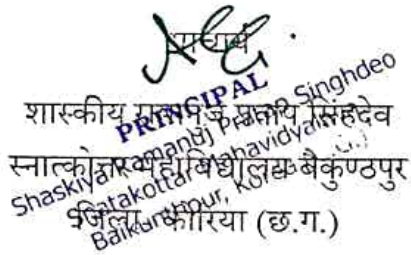 प्राचार्य
शासकीय रामानुज प्रताप सिंहदेव
स्नातकोत्तर महाविद्यालय बैकुण्ठपुर
जिला कोरिया (छ.ग.)
PRINCIPAL
Shaskiya Ramanuj Pratap Singhdeo
Snatakottar Mahavidyalaya
Baikunthpur, Korea (C.G.)